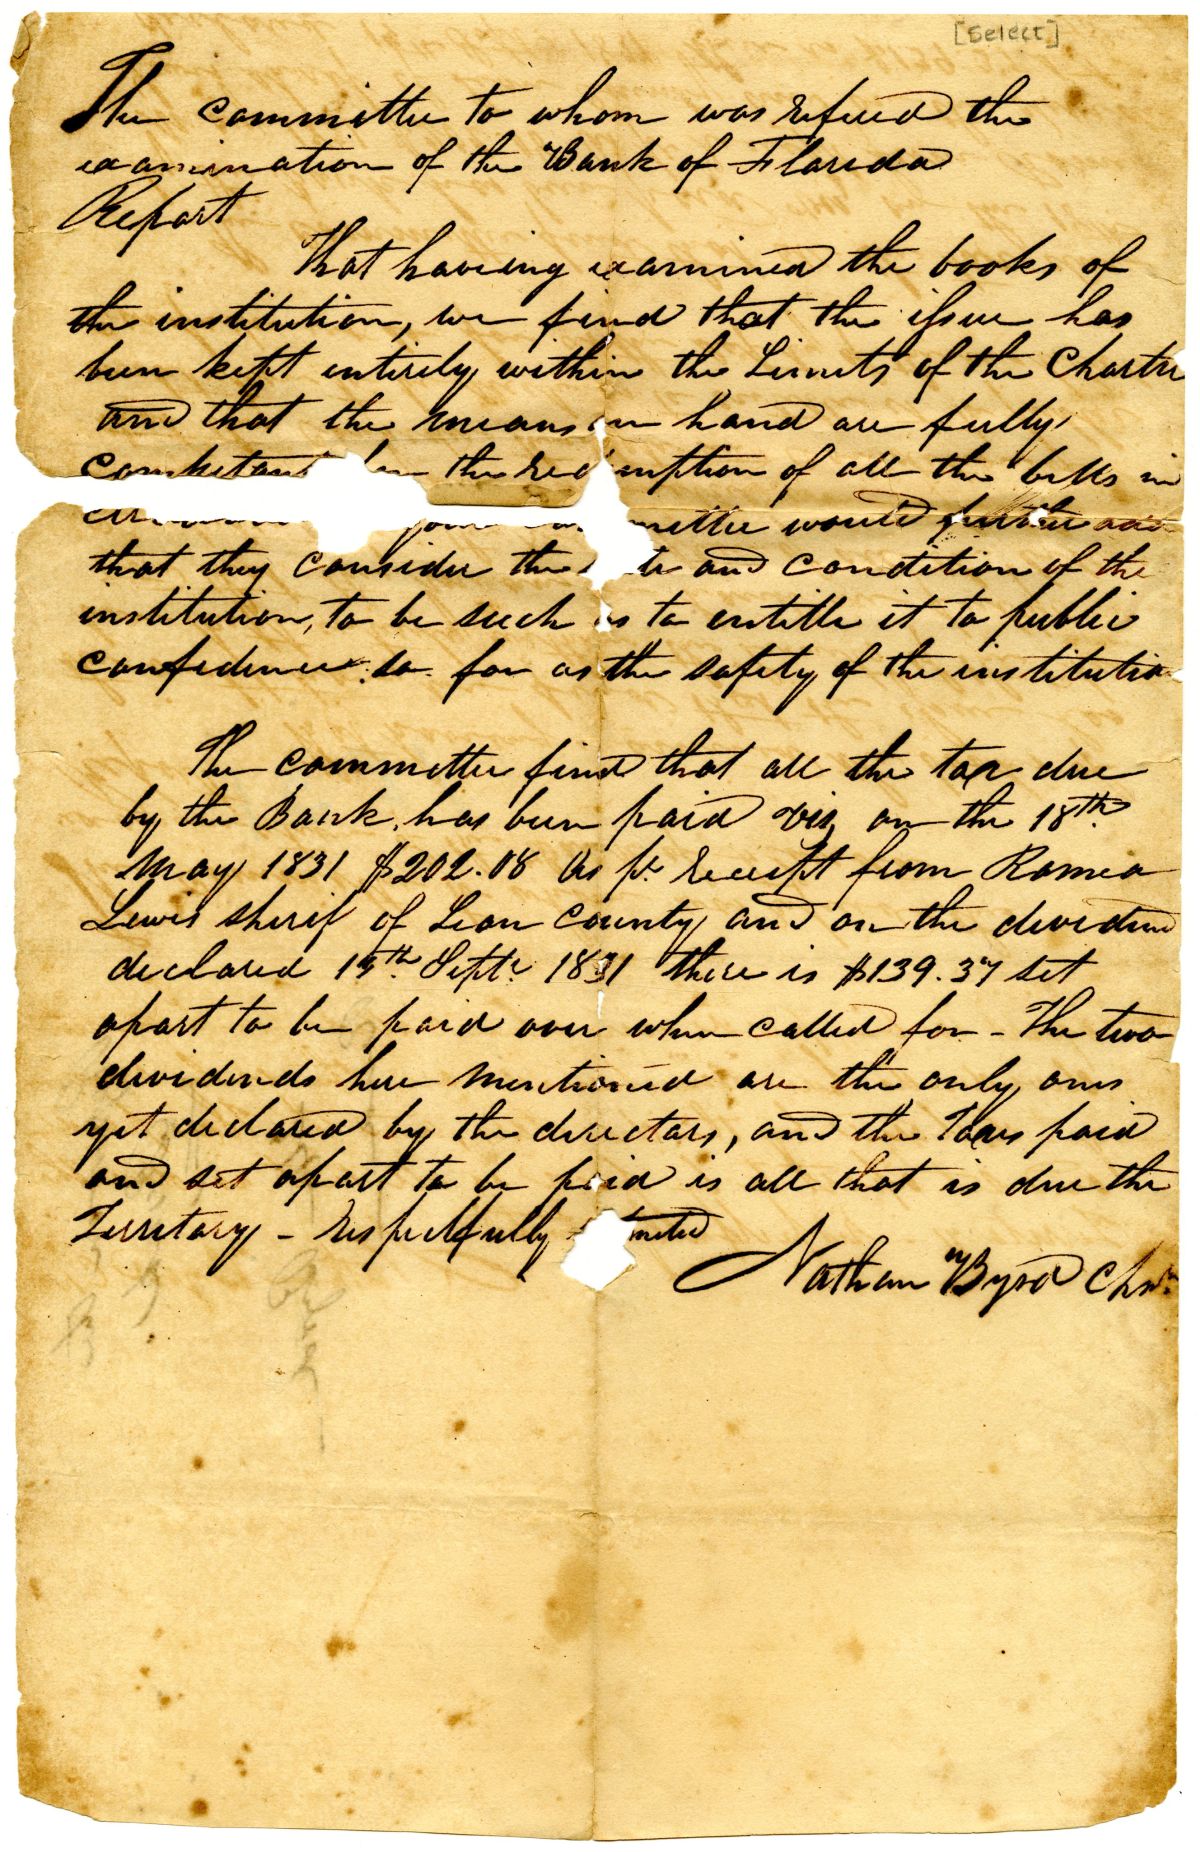 [Select]
The committee to whom was refered the
examination of the Bank of Florida
Report
That having examined the books of
the institution, we find that the issue has
been kept entirely within the Limits of the Charter
and that the means on hand are fully
the redemption of all the bills in
would further add
that they consider the and condition of the
institution, to be such as to entitle it to public
confidence so far as the safety of the institution
The committee find that all the tax due
by the Bank, has been paid viz, on the 18th
May 1831 $202.08 As pr receipt from Romeo
Lewis sherif of Leon County and on the dividend
declared 15th Septr 1831 there is $139.37 set
apart to be paid over when called for - The two
dividends here mentioned are the only ones
yet declared by the directors, and the Taxes paid
and set apart to be paid is all that is due the
Territory - respectfully
Nathan Byrd Chn